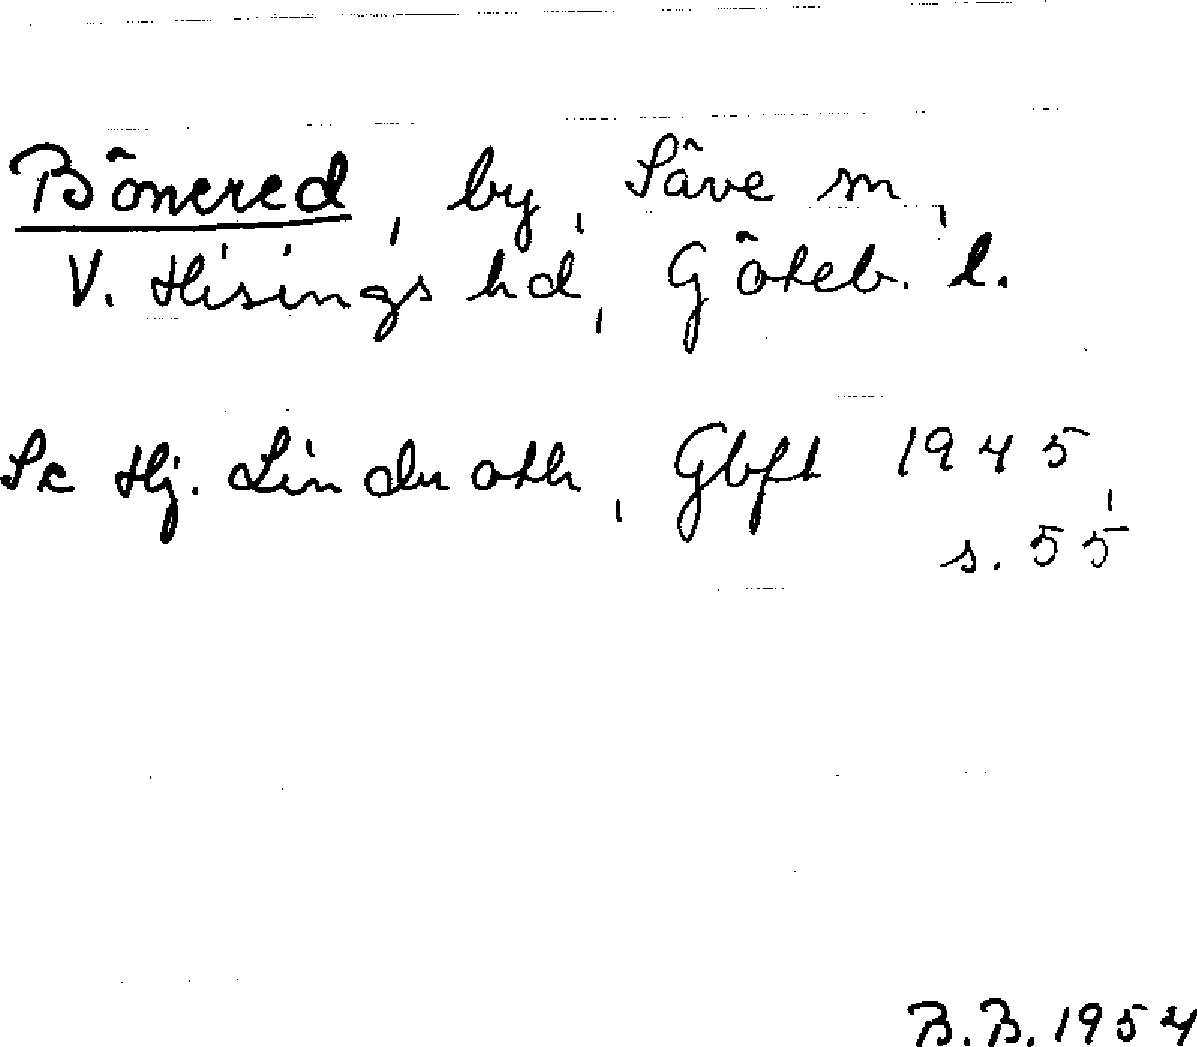 Bönered, by, Säve sn,
V. Hisings hd, Göteb. l.
Se Hj. Lindroth, Gbft 1945,
s. 55
B.B. 1954